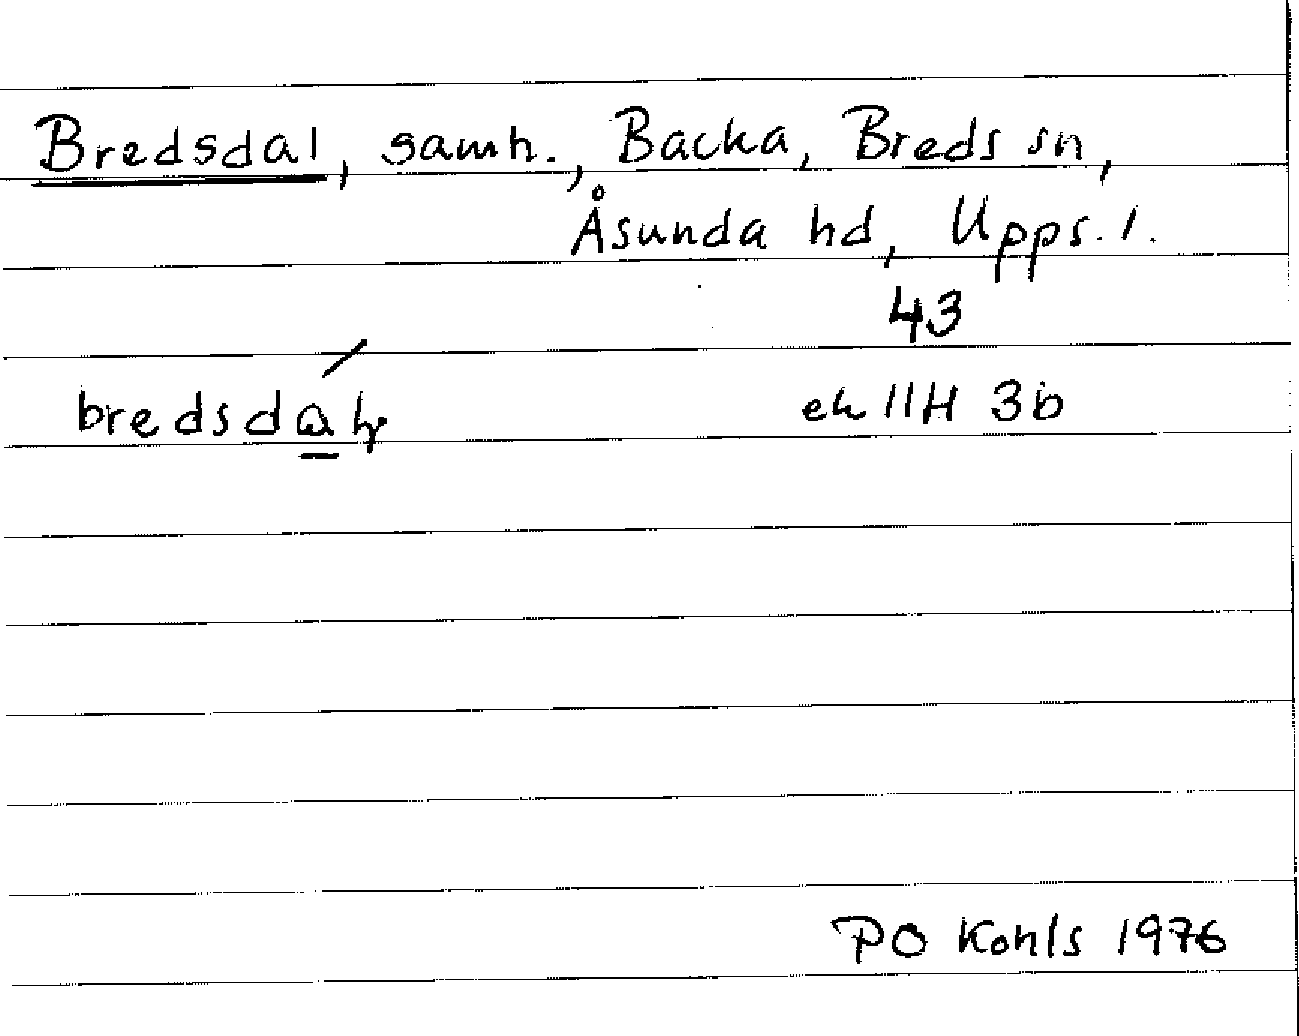 Bredsdal, samh., Backa, Breds sn,
Åsunda hd, Upps. l.
43
bredsdáḷ ek 11H 3b
PO Kohls 1976